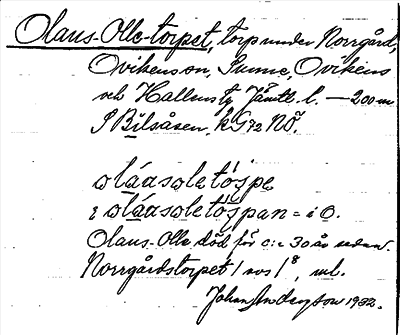 Olaus-Olle-torpet, torp under Norrgård,
Ovikens sn, Sunne, Ovikens
och Hallens tg Jämtl. l. — 200 m
S Bilsåsen. kG72 NÖ.
oláasoletóspe
i oláasoletóspan = i O.
Olaus-Olle död för c:a 30 år sedan.
Norrgårdstorpet / sos / 8, ml.
Johan Anderson 1932.